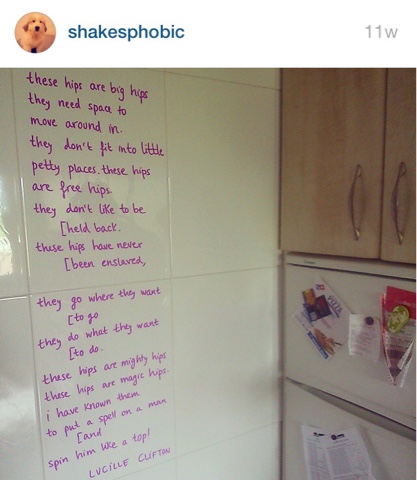 shakesphobic
11w
these hips are big hips
they need space to
move around in.
they don't fit into little
petty places. these hips
are free hips.
they don't like to be
[held back.
these hips have never
[been enslaved,
they go where they want
[to go
they do what they want
[to do.
these hips are mighty hips
these hips are magic hips.
i have known them
to put a spell on a man
[and
spin him like a top!
LUCILLE CLIFTON